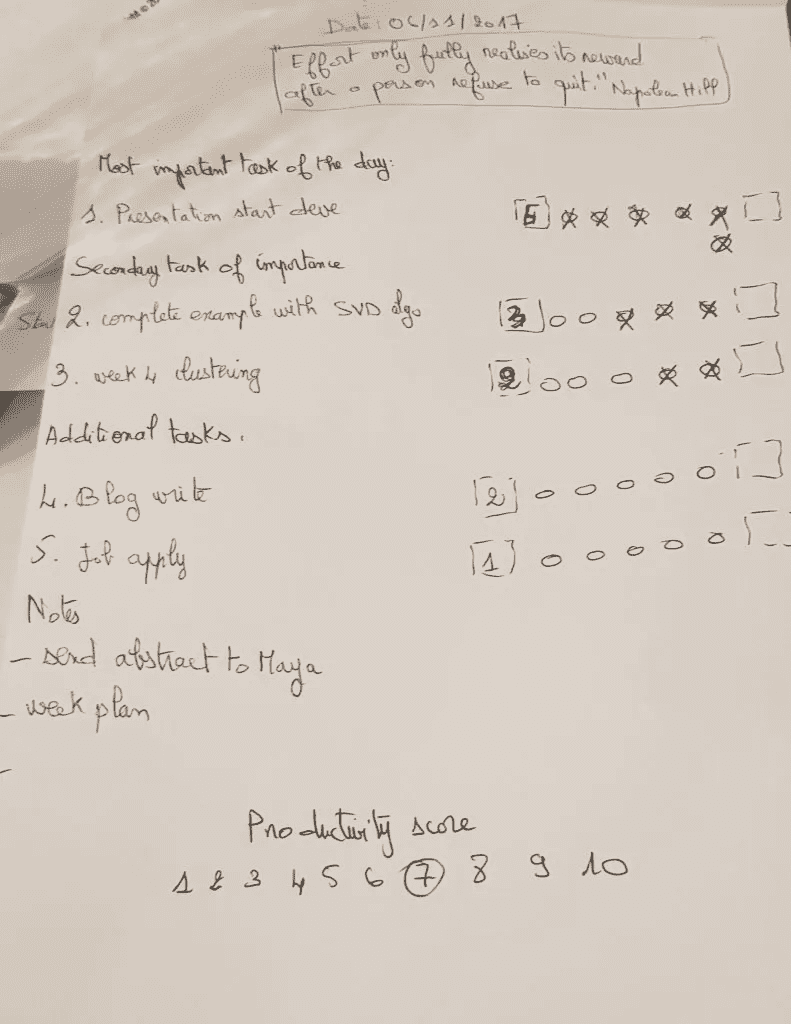 Date: 06/11/2017
"Effort only fully realises its reward
after a person refuse to quit." Napoleon Hill
Most important task of the day:
1. Presentation start deve
Secondary task of importance
2. complete example with SVD algo
3. week 4 clustering
Additional tasks.
4. Blog write
5. Job apply
Notes
- send abstract to Maya
- week plan
-
Productivity score
1 2 3 4 5 6 7 8 9 10